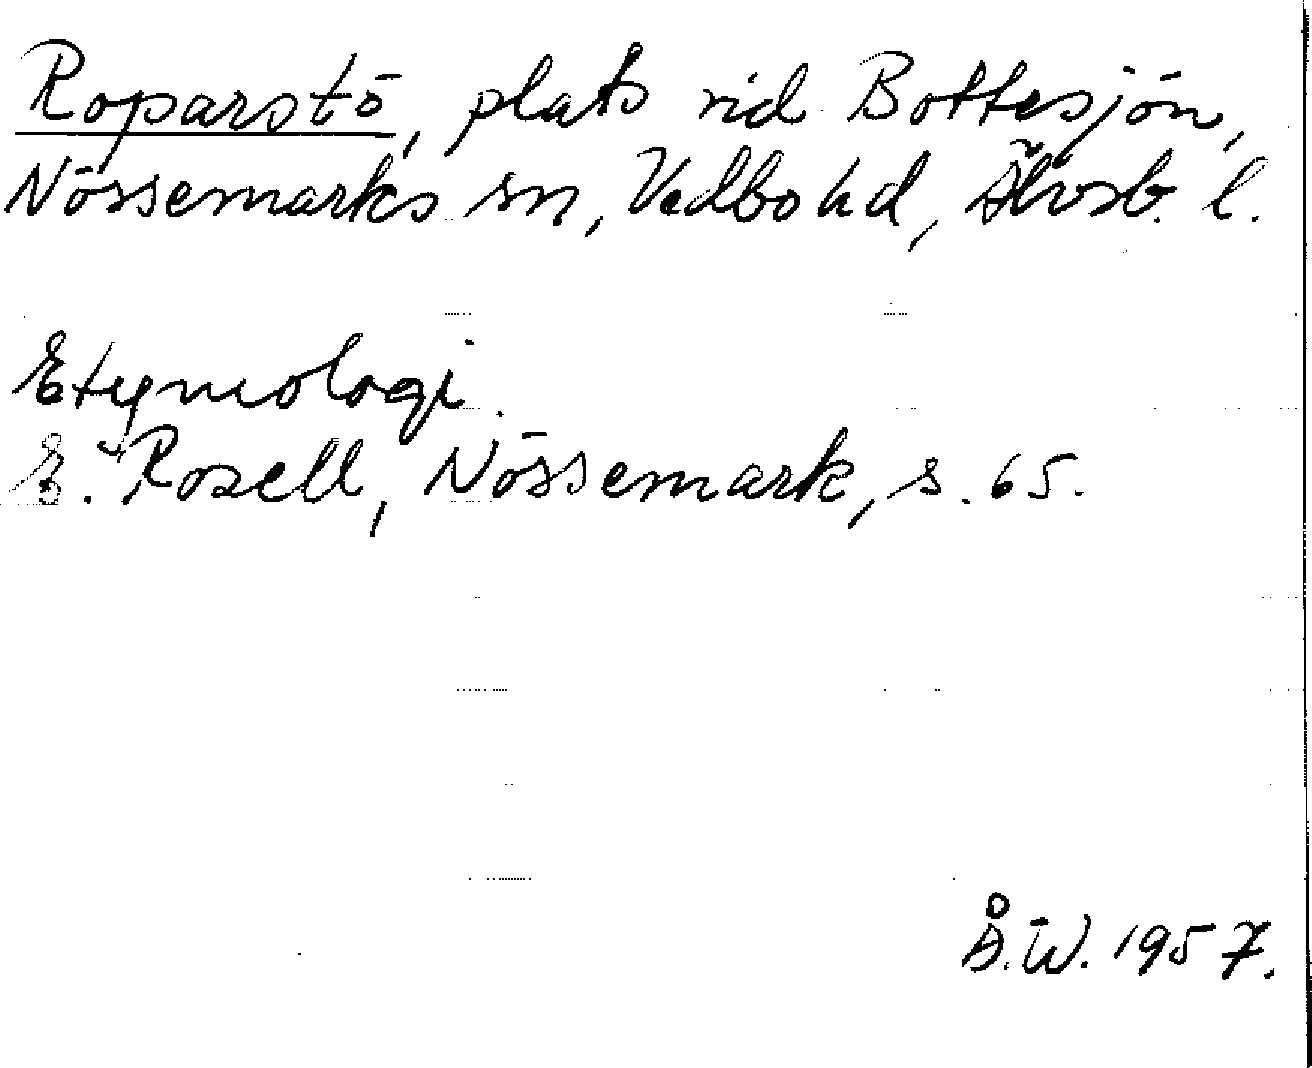 Roparstö, plats vid Bottesjön,
Nössemarks sn, Vedbo hd, Älvsb. l.
Etymologi.
E. Rosell, Nössemark, s. 65.
Å. W. 1957.